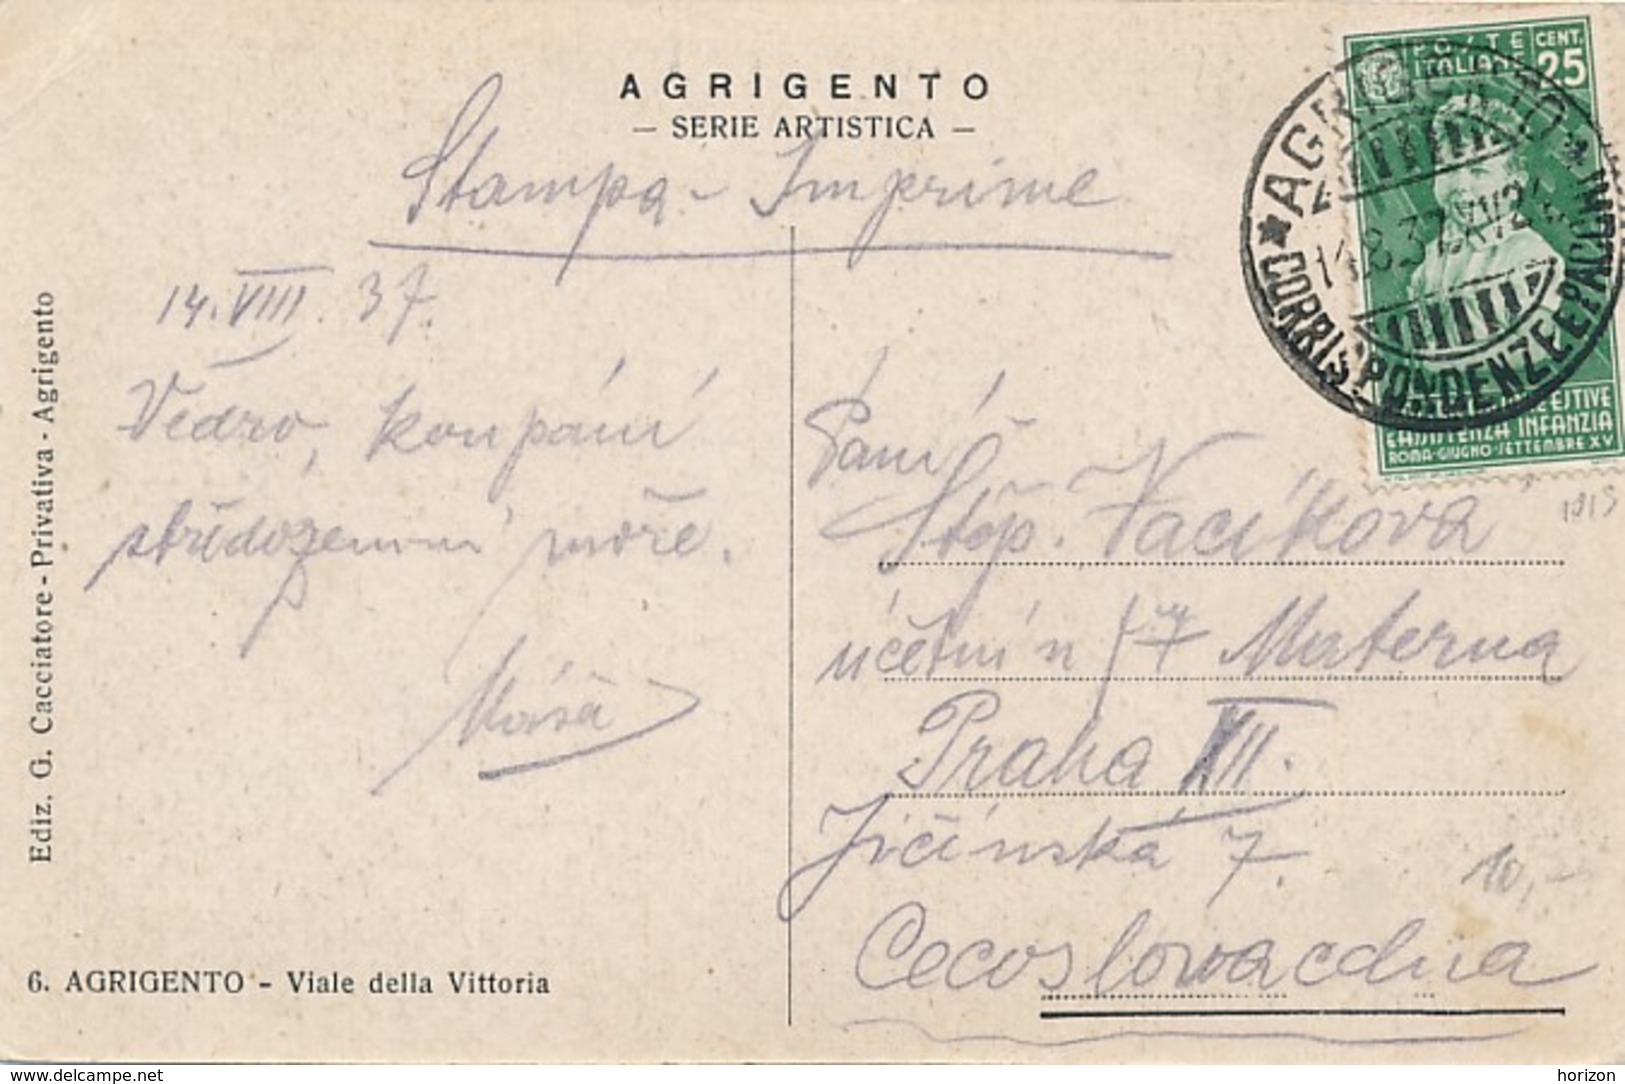 AGRIGENTO
— SERIE ARTISTICA —
Stampa - Imprime
POSTE
ITALIANE
CENT.
25
AGRIGENTO
14.8.37.XV 24
CORRISPONDENZE E PACCHI
ESTIVE
E ASSISTENZA INFANZIA
ROMA-GIUGNO-SETTEMBRE XV
14. VIII. 37.
Vedro, koupání
středozemní moře.
Máša
Paní
Štěp. Vacíková
účetní u f7 Materna
Praha XII.
Jičínská 7.
Cecoslovacchia
1915
10,-
Ediz. G. Cacciatore - Privativa - Agrigento
6. AGRIGENTO - Viale della Vittoria
www.delcampe.net
horizon